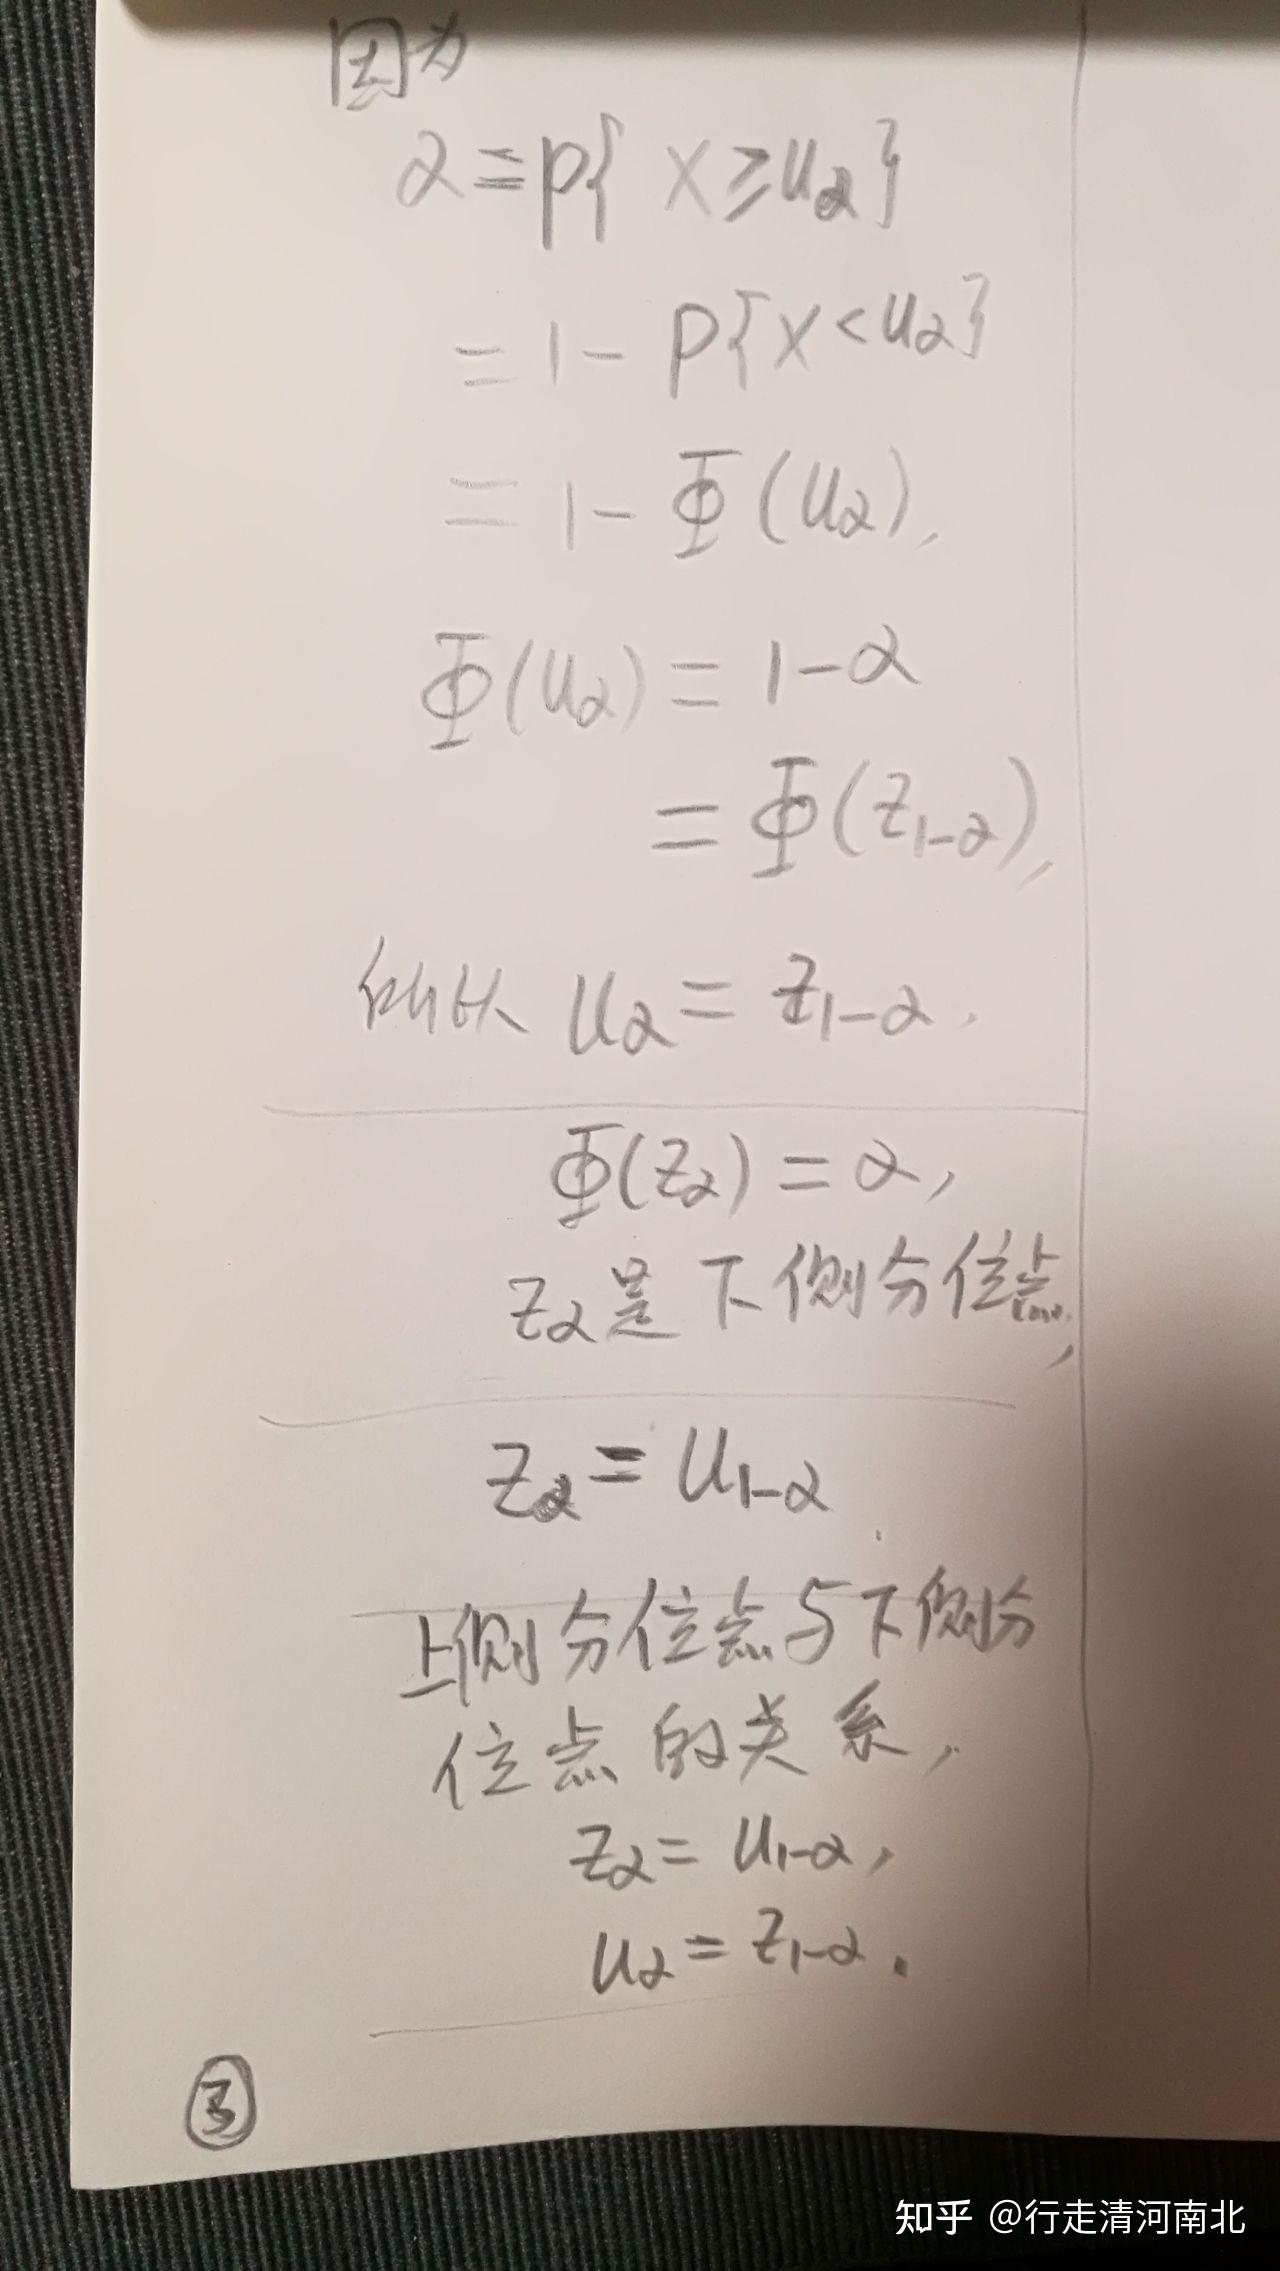 因为
α = P{ X ≥ uα }
= 1 - P{ X < uα }
= 1 - Φ(uα),
Φ(uα) = 1 - α
= Φ(z1-α),
所以 uα = z1-α.
Φ(zα) = α,
zα是下侧分位点,
zα = u1-α
上侧分位点与下侧分
位点的关系,
zα = u1-α,
uα = z1-α.
③
知乎 @行走清河南北